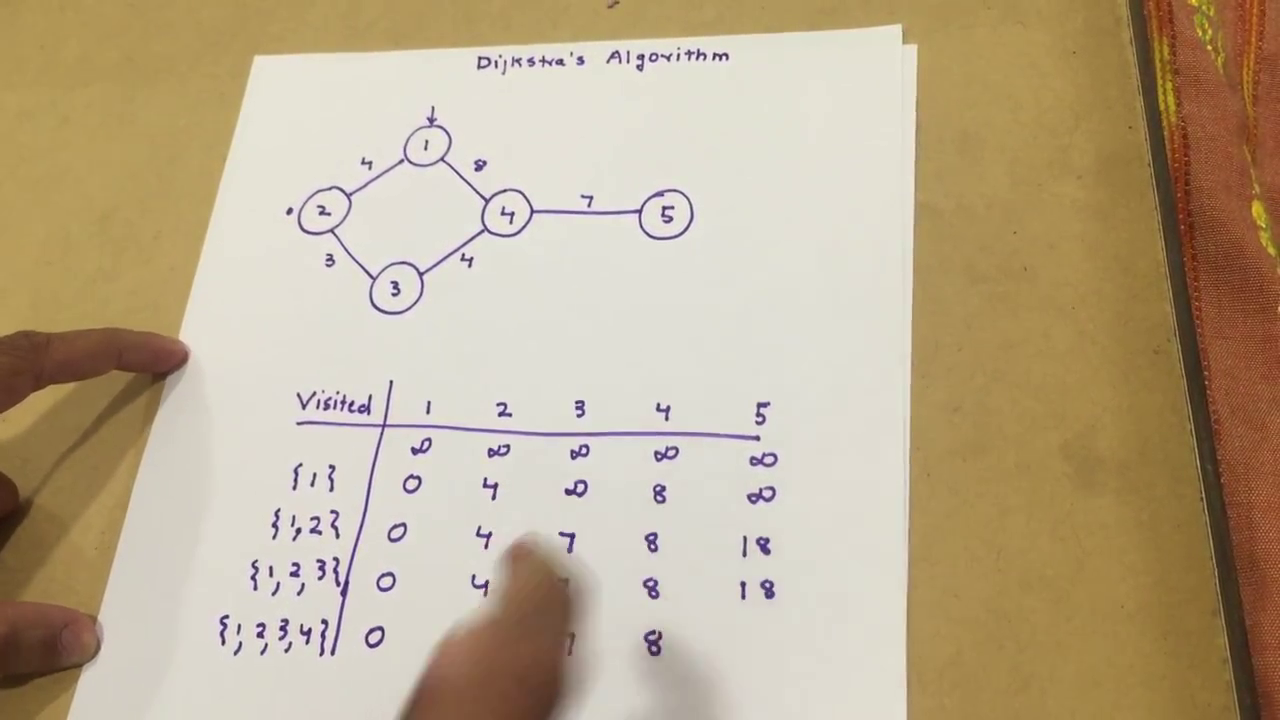 Dijkstra's Algorithm
1
4 8
2 4 7 5
3 4
3
Visited 1 2 3 4 5
∞ ∞ ∞ ∞ ∞
{1} 0 4 ∞ 8 ∞
{1,2} 0 4 7 8 18
{1,2,3} 0 4 8 18
{1,2,3,4} 0 8